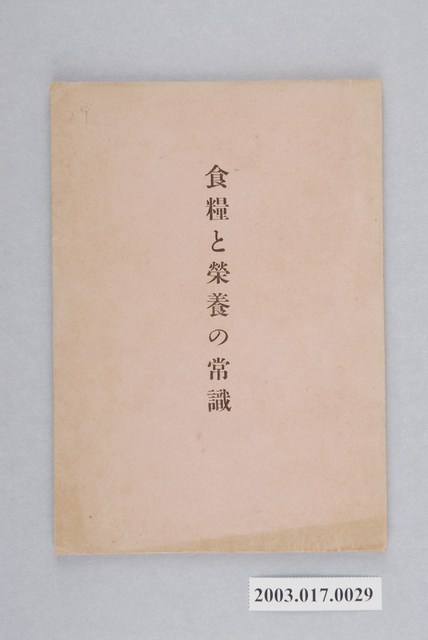 食糧と榮養の常識
2003.017.0029